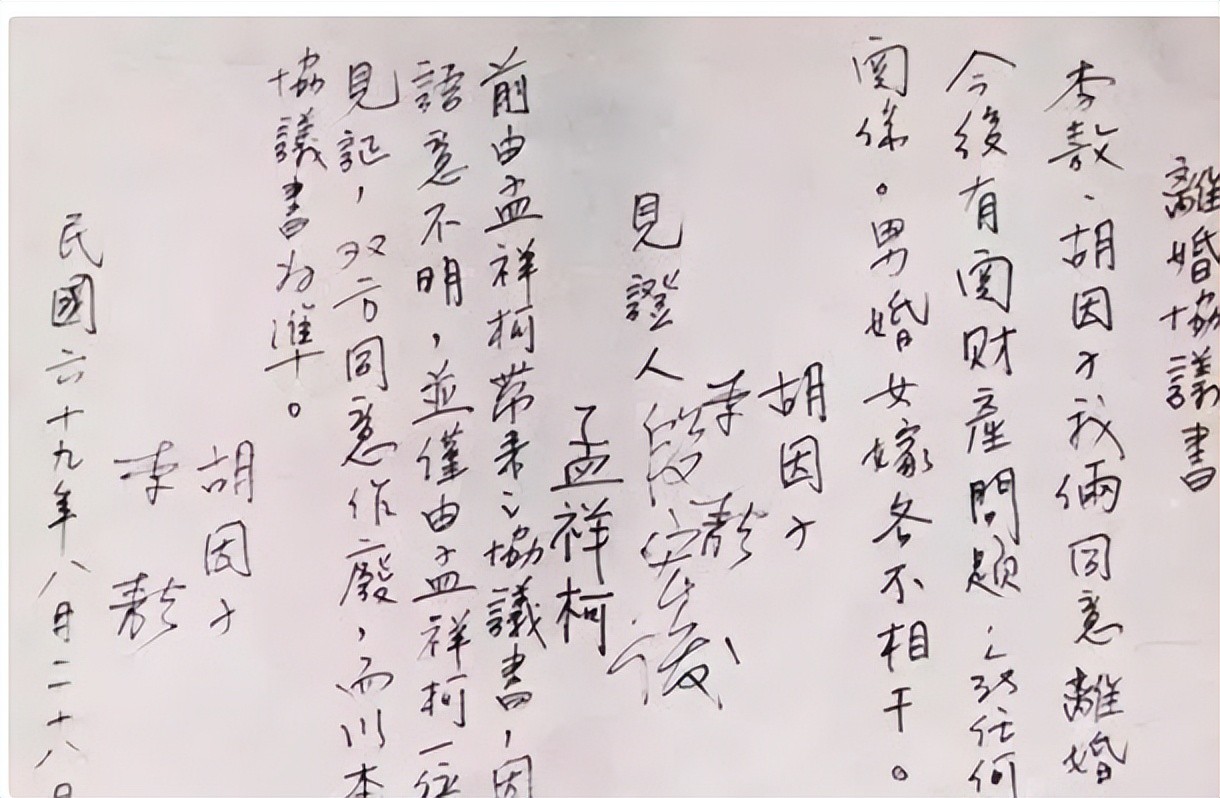 離婚協議書
李敖、胡因子我倆同意離婚
今後有関財產問題,
関係。男婚女嫁各不相干。
胡因子
李敖
見證人 段宏俊
孟祥柯
前由孟祥柯帶来之協議書,因
語意不明,並僅由孟祥柯一位
見証,双方同意作廢,而以本
協議書为準。
胡因子
李敖
民國六十九年八月二十八日